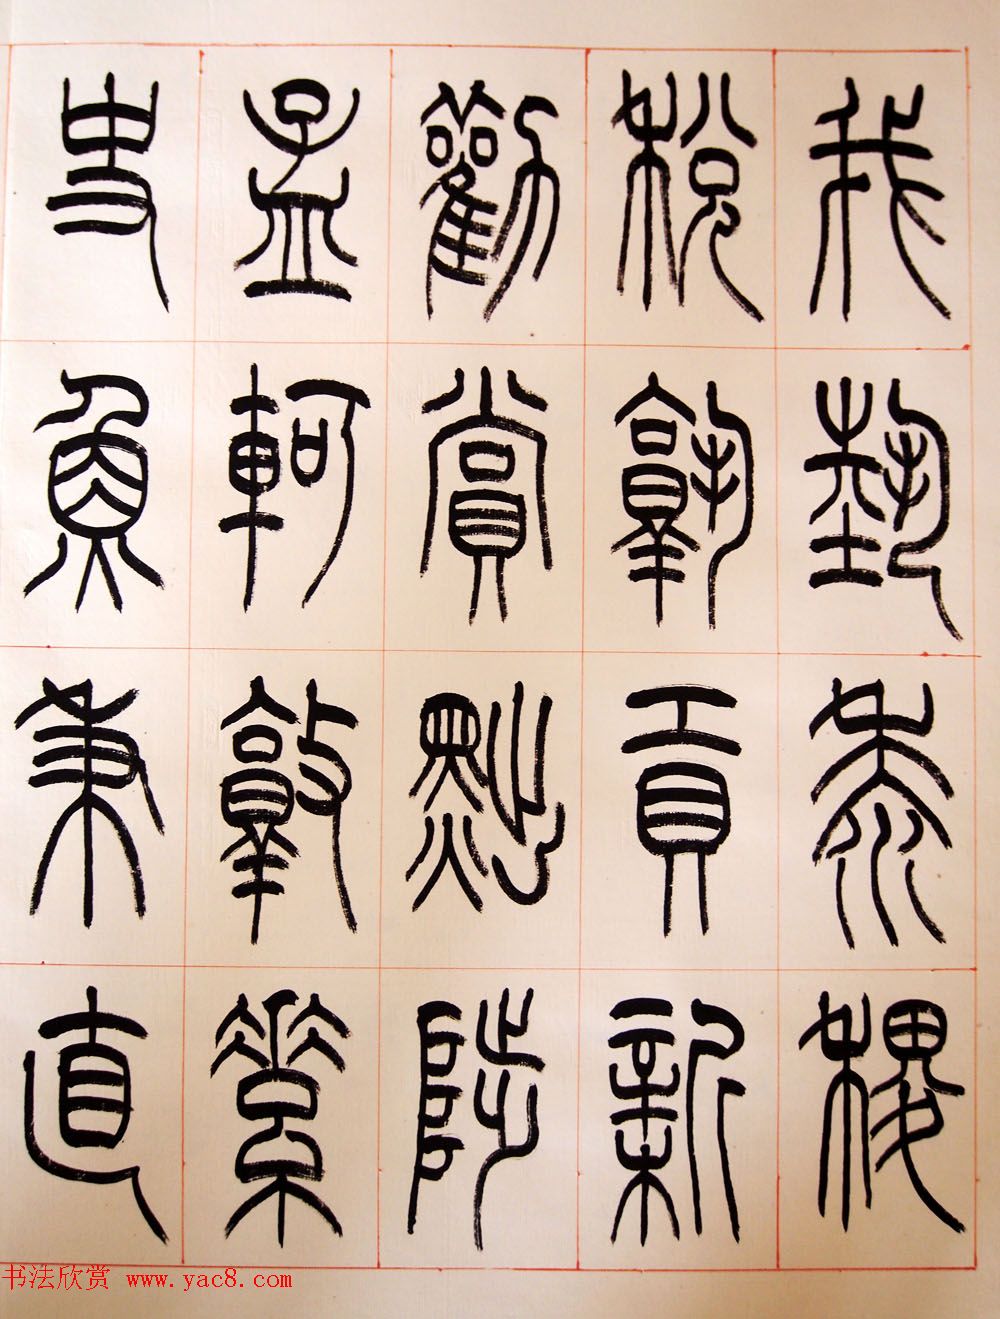 我埶黍稷
稅孰貢新
勸賞黜陟
孟軻敦素
史魚秉直
书法欣赏 www.yac8.com